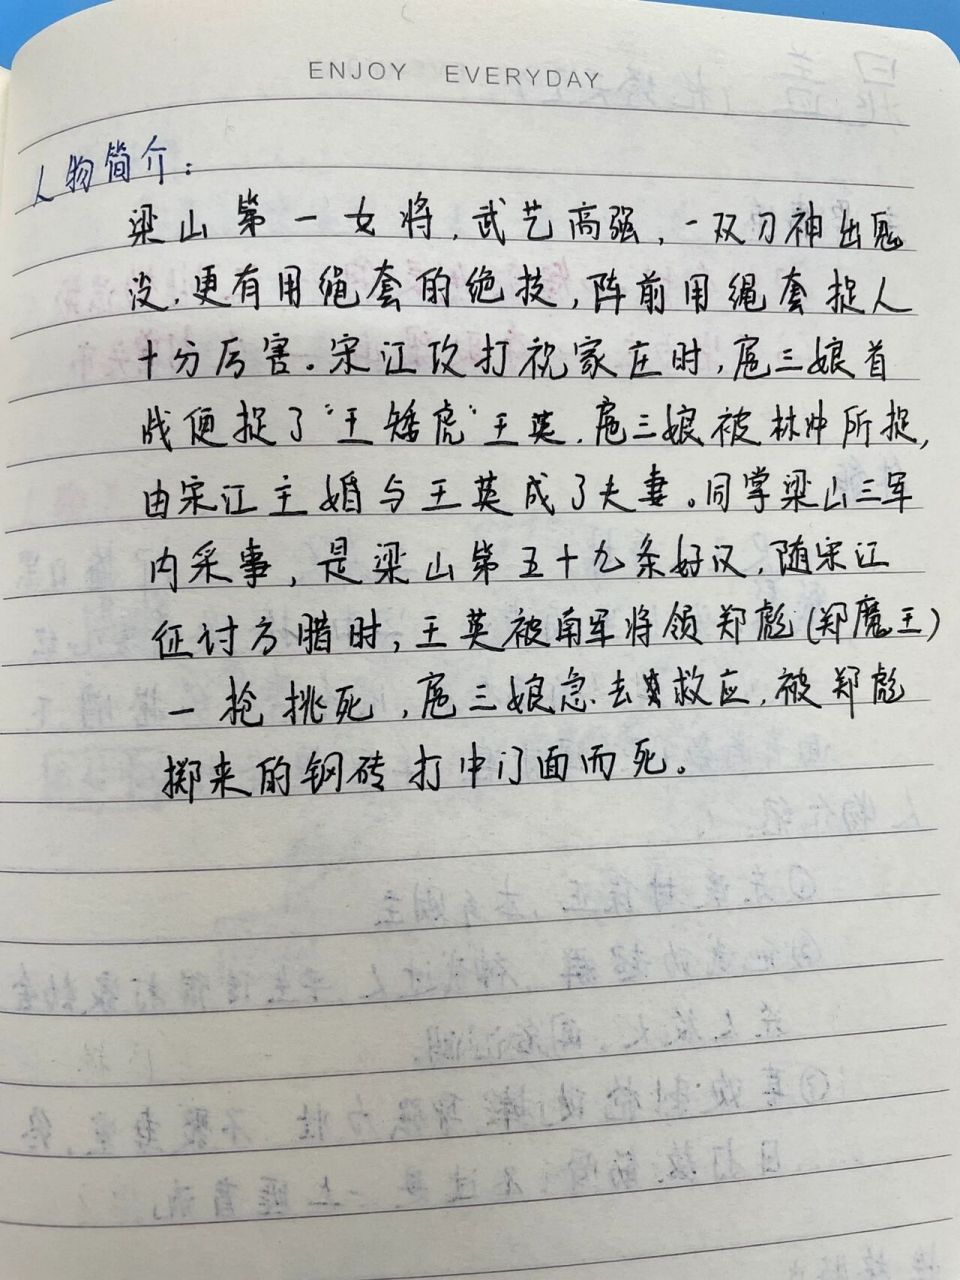 ENJOY EVERYDAY
人物简介：
梁山第一女将，武艺高强，一双刀神出鬼
没，更有用绳套的绝技，阵前用绳套捉人
十分厉害。宋江攻打祝家庄时，扈三娘首
战便捉了“王矮虎”王英，扈三娘被林冲所捉，
由宋江主婚与王英成了夫妻。同掌梁山三军
内采事，是梁山第五十九条好汉，随宋江
征讨方腊时，王英被南军将领郑彪(郑魔王)
一枪挑死，扈三娘急去救应，被郑彪
掷来的钢砖打中门面而死。